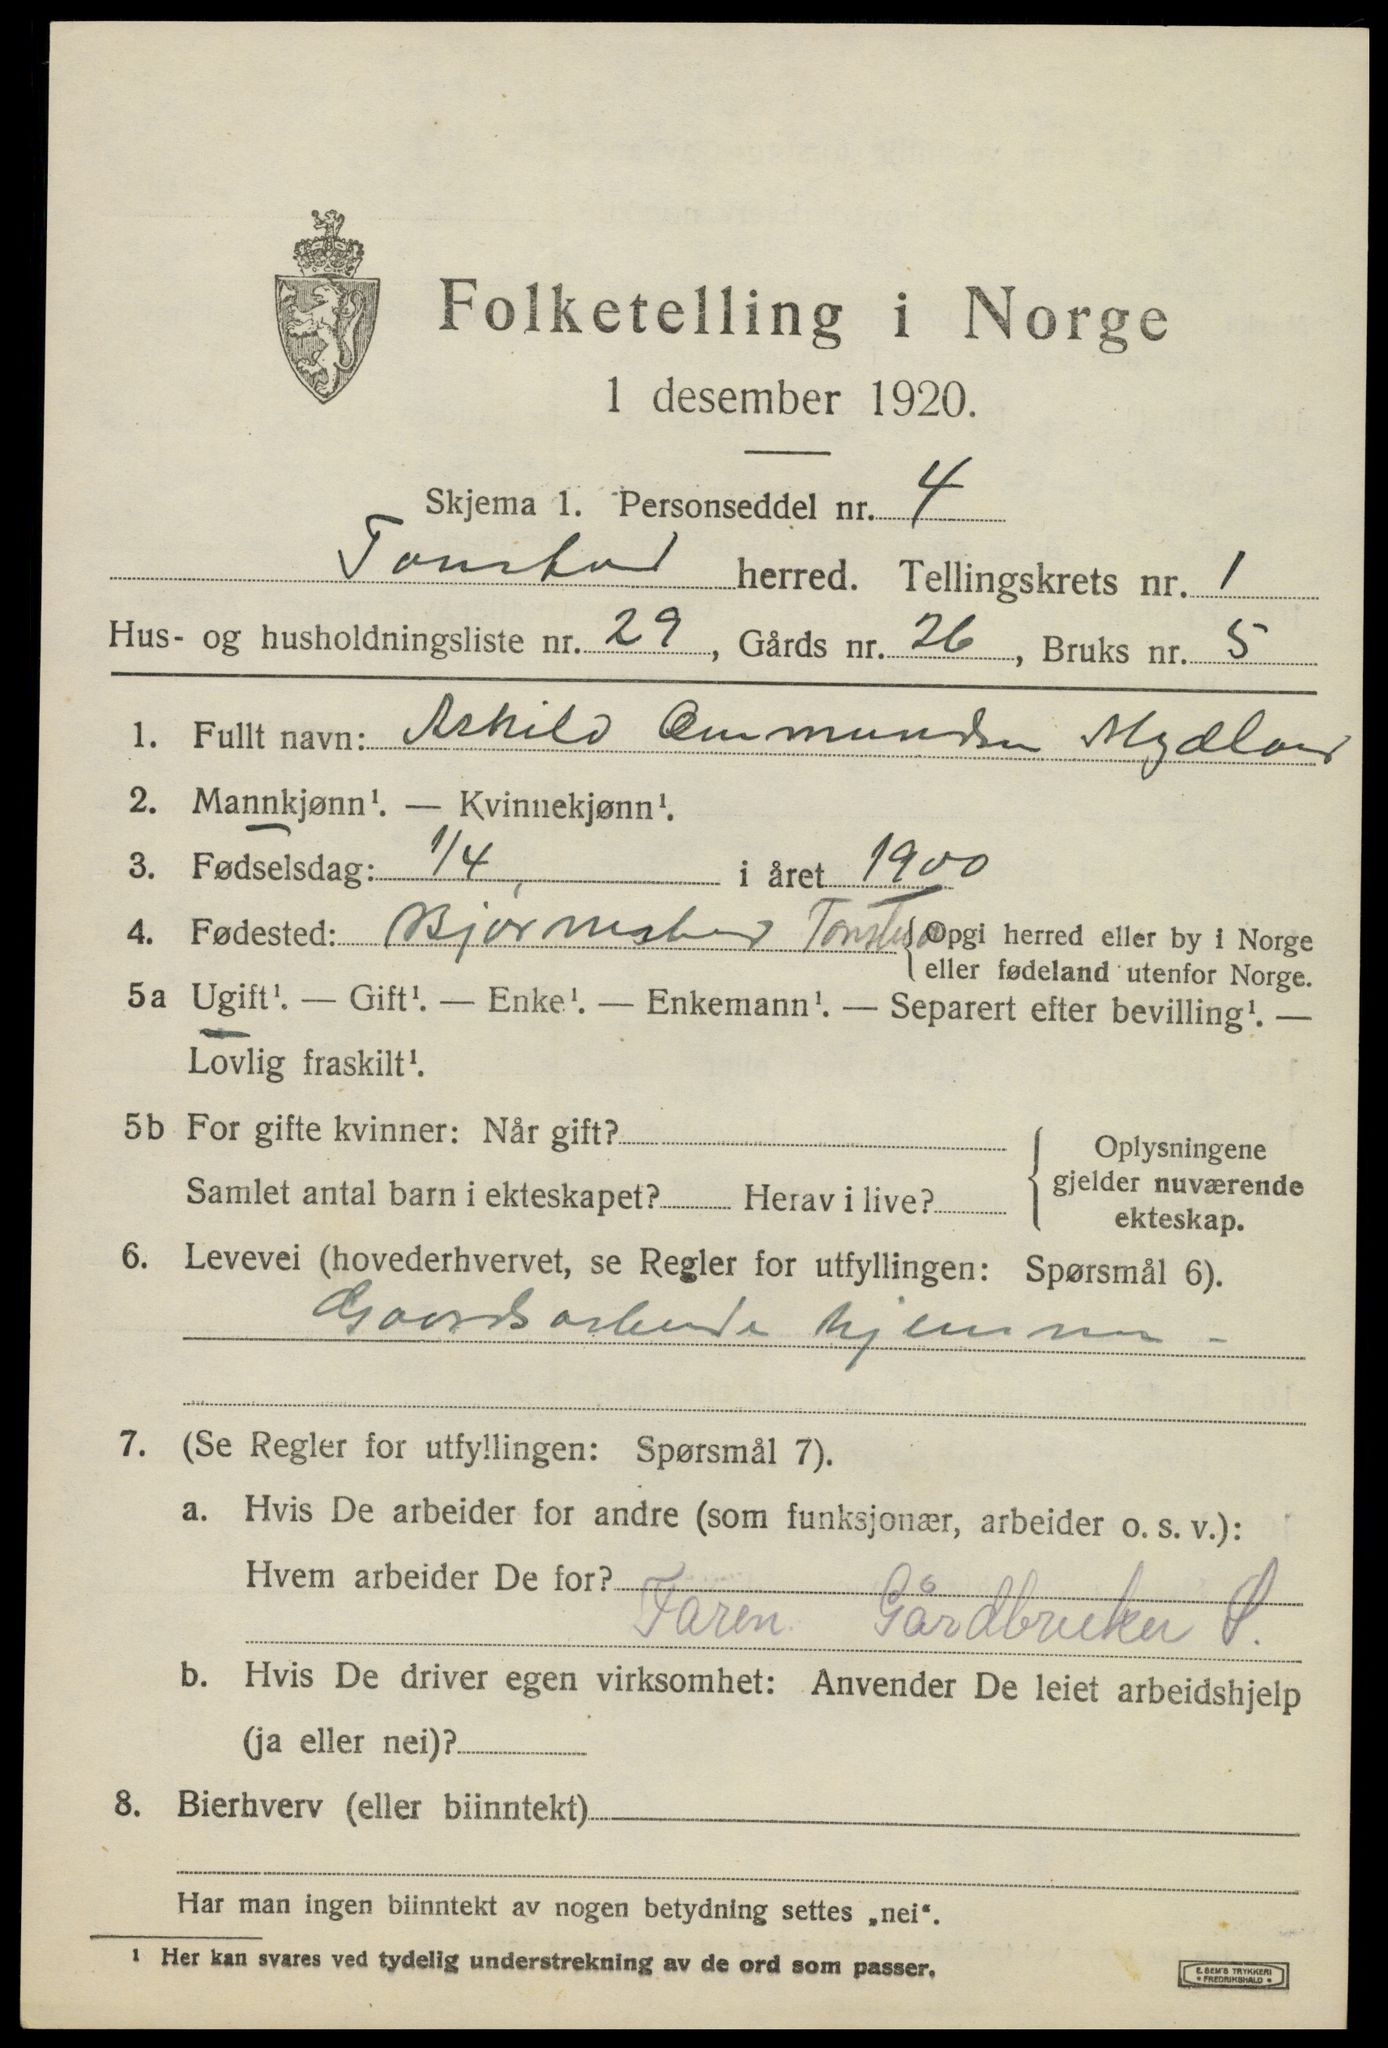 Folketelling i Norge
1 desember 1920.
Skjema 1. Personseddel nr. 4
Tonstad herred. Tellingskrets nr. 1
Hus- og husholdningsliste nr. 29, Gårds nr. 26, Bruks nr. 5
1. Fullt navn: Askild Ommundsen Mydland
2. Mannkjønn¹. — Kvinnekjønn¹.
3. Fødselsdag: 1/4, i året 1900
4. Fødested: Bjørnestad Tonstad {Opgi herred eller by i Norge
eller fødeland utenfor Norge.
5a Ugift¹. — Gift¹. — Enke¹. — Enkemann¹. — Separert efter bevilling¹. —
Lovlig fraskilt¹.
5b For gifte kvinner: Når gift?
Samlet antal barn i ekteskapet? Herav i live?
Oplysningene
gjelder nuværende
ekteskap.
6. Levevei (hovederhvervet, se Regler for utfyllingen: Spørsmål 6).
Gaardsarbeide hjemme -
7. (Se Regler for utfyllingen: Spørsmål 7).
a. Hvis De arbeider for andre (som funksjonær, arbeider o. s. v.):
Hvem arbeider De for?
Faren Gårdbruker S.
b. Hvis De driver egen virksomhet: Anvender De leiet arbeidshjelp
(ja eller nei)?
8. Bierhverv (eller biinntekt)
Har man ingen biinntekt av nogen betydning settes „nei“.
¹ Her kan svares ved tydelig understrekning av de ord som passer.
E. SEM'S TRYKKERI
* FREDRIKSHALD *